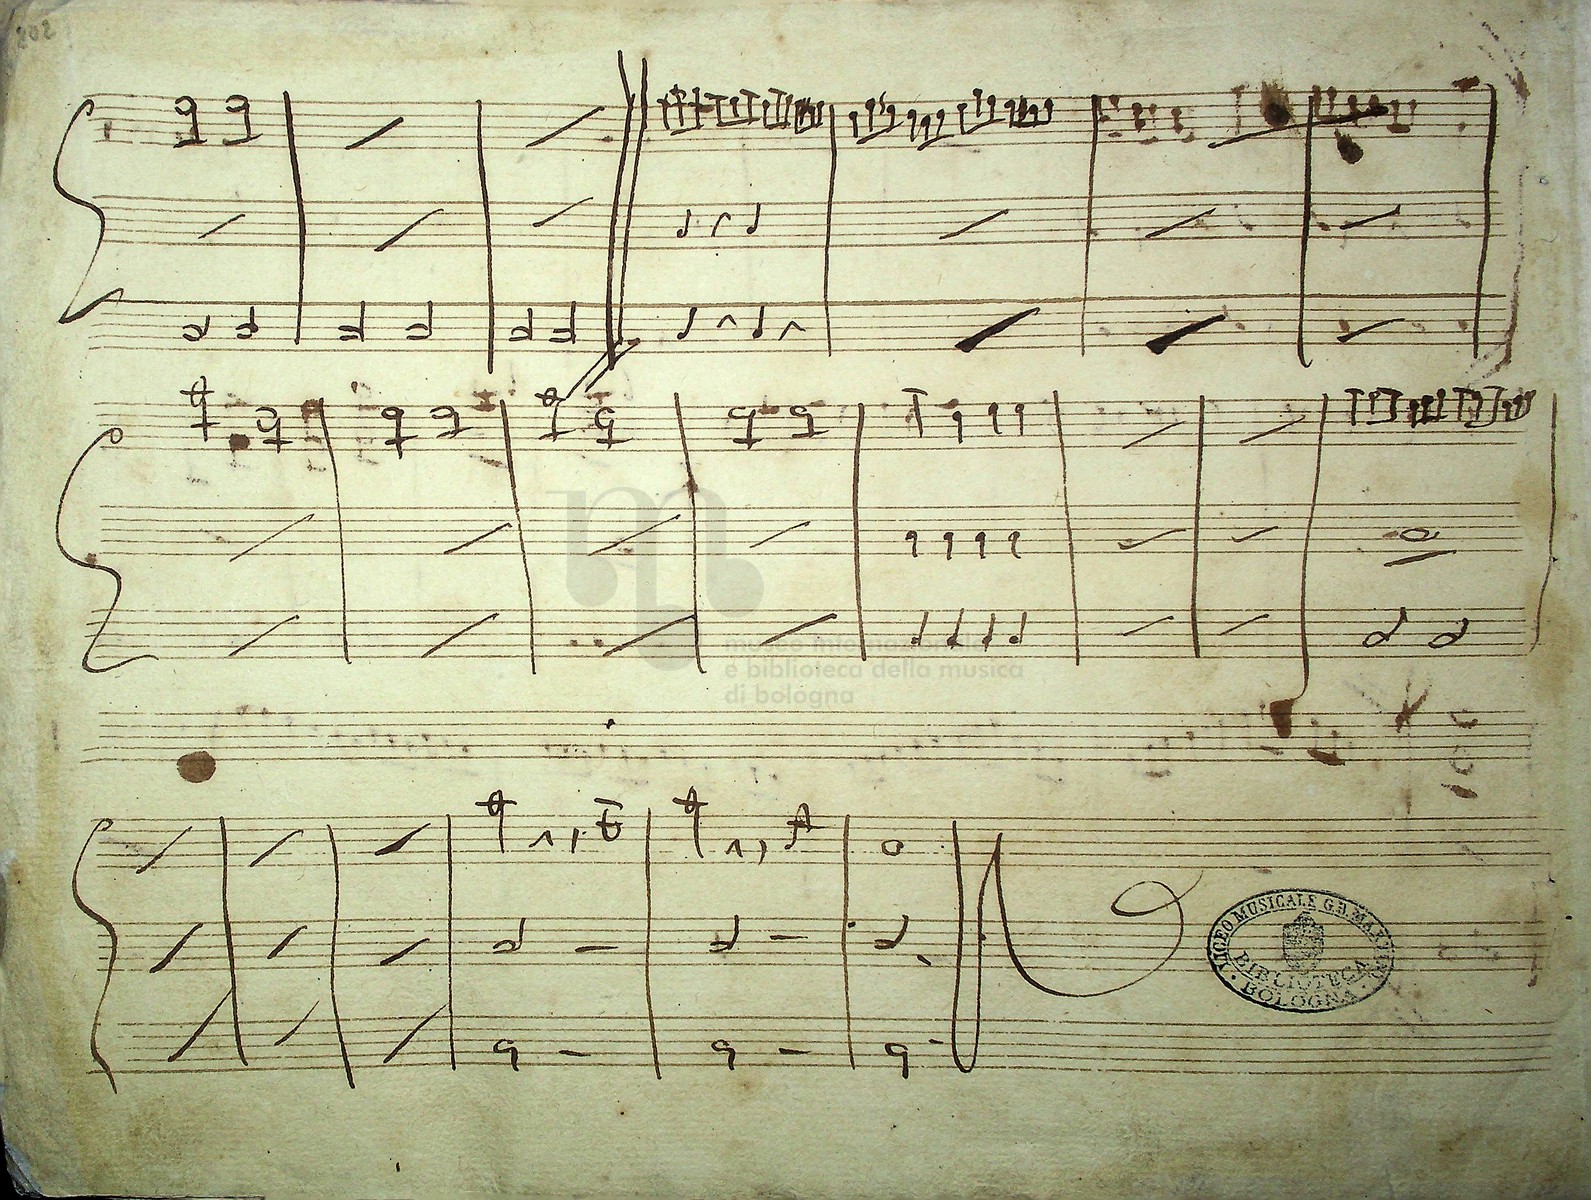 202
museo internazionale
e biblioteca della musica
di bologna
LICEO MUSICALE G.B. MARTINI
BIBLIOTECA
· BOLOGNA ·